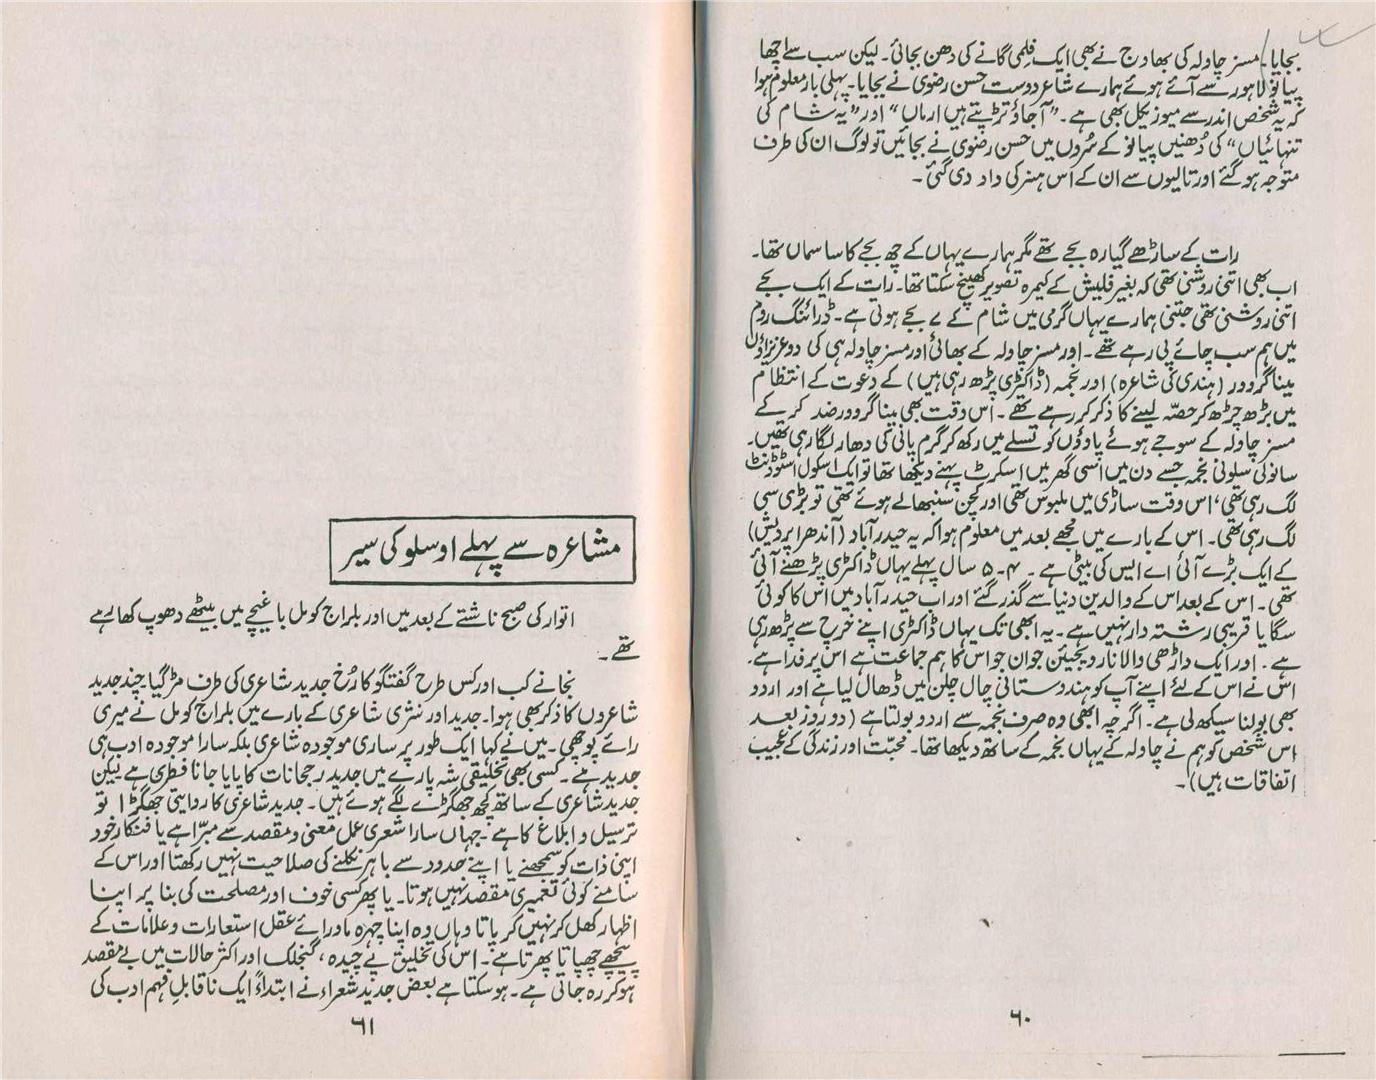 بجایا۔ مسز چاولہ کی بھاوج نے بھی ایک فلمی گانے کی دھن بجائی۔ لیکن سب سے اچھا
پیانو لاہور سے آئے ہوئے ہمارے شاعر دوست حسن رضوی نے بجایا۔ پہلی بار معلوم ہوا
کہ یہ شخص اندر سے میوزیکل بھی ہے۔ "آجاؤ تڑپتے ہیں ارماں" اور "یہ شام کی
تنہائیاں" کی دُھنیں پیانو کے سُروں میں حسن رضوی نے بجائیں تو لوگ ان کی طرف
متوجہ ہو گئے اور تالیوں سے ان کے اس ہنر کی داد دی گئی۔
رات کے ساڑھے گیارہ بجے تھے مگر ہمارے یہاں کے چھ بجے کا سا سماں تھا۔
اب بھی اتنی روشنی تھی کہ بغیر فلیش کے کیمرہ تصویر کھینچ سکتا تھا۔ رات کے ایک بجے
اتنی روشنی تھی جتنی ہمارے یہاں گرمی میں شام کے ۷ بجے ہوتی ہے۔ ڈرائنگ روم
میں ہم سب چائے پی رہے تھے۔ اور مسز چاولہ کے بھائی اور مسز چاولہ ہی کی دو عزیزاؤں
مینا گروور (ہندی کی شاعرہ) اور نجمہ (ڈاکٹری پڑھ رہی ہیں) کے دعوت کے انتظام
میں بڑھ چڑھ کر حصّہ لینے کا ذکر کر رہے تھے۔ اس وقت بھی مینا گروور ضد کر کے
مسز چاولہ کے سوجے ہوئے پاؤوں کو تسلے میں رکھ کر گرم پانی کی دھار لگا رہی تھیں۔
سانولی سلونی نجمہ جسے دن میں اسی گھر میں اسکرٹ پہنے دیکھا تھا تو ایک اسکول اسٹوڈنٹ
لگ رہی تھی، اس وقت ساڑی میں ملبوس تھی اور کچن سنبھالے ہوئے تھی تو بڑی سی
لگ رہی تھی۔ اس کے بارے میں مجھے بعد میں معلوم ہوا کہ یہ حیدرآباد (آندھرا پردیش)
کے ایک بڑے آئی اے ایس کی بیٹی ہے۔ ۴۔۵ سال پہلے یہاں ڈاکٹری پڑھنے آئی
تھی۔ اس کے بعد اس کے والدین دنیا سے گذر گئے اور اب حیدرآباد میں اس کا کوئی
سگا یا قریبی رشتہ دار نہیں ہے۔ یہ ابھی تک یہاں ڈاکٹری اپنے خرچ سے پڑھ رہی
ہے۔ اور ایک داڑھی والا نارویجیئن جوان جو اس کا ہم جماعت ہے اس پر فدا ہے۔
اس نے اس کے لئے اپنے آپ کو ہندوستانی چال چلن میں ڈھال لیا ہے اور اردو
بھی بولنا سیکھ لی ہے۔ اگرچہ ابھی وہ صرف نجمہ سے اردو بولتا ہے (دو روز بعد
اس شخص کو ہم نے چاولہ کے یہاں نجمہ کے ساتھ دیکھا تھا۔ محبّت اور زندگی کے عجیب
اتفاقات ہیں)۔
۶۰
مشاعرہ سے پہلے اوسلو کی سیر
اتوار کی صبح ناشتے کے بعد میں اور بلراج کومل باغیچے میں بیٹھے دھوپ کھا رہے
تھے۔
نجانے کب اور کس طرح گفتگو کا رُخ جدید شاعری کی طرف مڑ گیا۔ چند جدید
شاعروں کا ذکر بھی ہوا۔ جدید اور نثری شاعری کے بارے میں بلراج کومل نے میری
رائے پوچھی۔ میں نے کہا ایک طور پر ساری موجودہ شاعری بلکہ سارا موجودہ ادب ہی
جدید ہے۔ کسی بھی تخلیقی شہ پارے میں جدید رجحانات کا پایا جانا فطری ہے لیکن
جدید شاعری کے ساتھ کچھ جھگڑے لگے ہوئے ہیں۔ جدید شاعری کا روایتی جھگڑا تو
ترسیل و ابلاغ کا ہے۔ جہاں سارا شعری عمل معنی و مقصد سے مبرّا ہے یا فنکار خود
اپنی ذات کو سمجھنے یا اپنے حدود سے باہر نکلنے کی صلاحیت نہیں رکھتا اور اس کے
سامنے کوئی تعمیری مقصد نہیں ہوتا۔ یا پھر کسی خوف اور مصلحت کی بنا پر اپنا
اظہار کھل کر نہیں کر پاتا وہاں وہ اپنا چہرہ ماورائے عقل استعارات و علامات کے
پیچھے چھپاتا پھرتا ہے۔ اس کی تخلیق پیچیدہ، گنجلک اور اکثر حالات میں بے مقصد
ہو کر رہ جاتی ہے۔ ہو سکتا ہے بعض جدید شعراء نے ابتداءً ایک ناقابلِ فہم ادب کی
۶۱